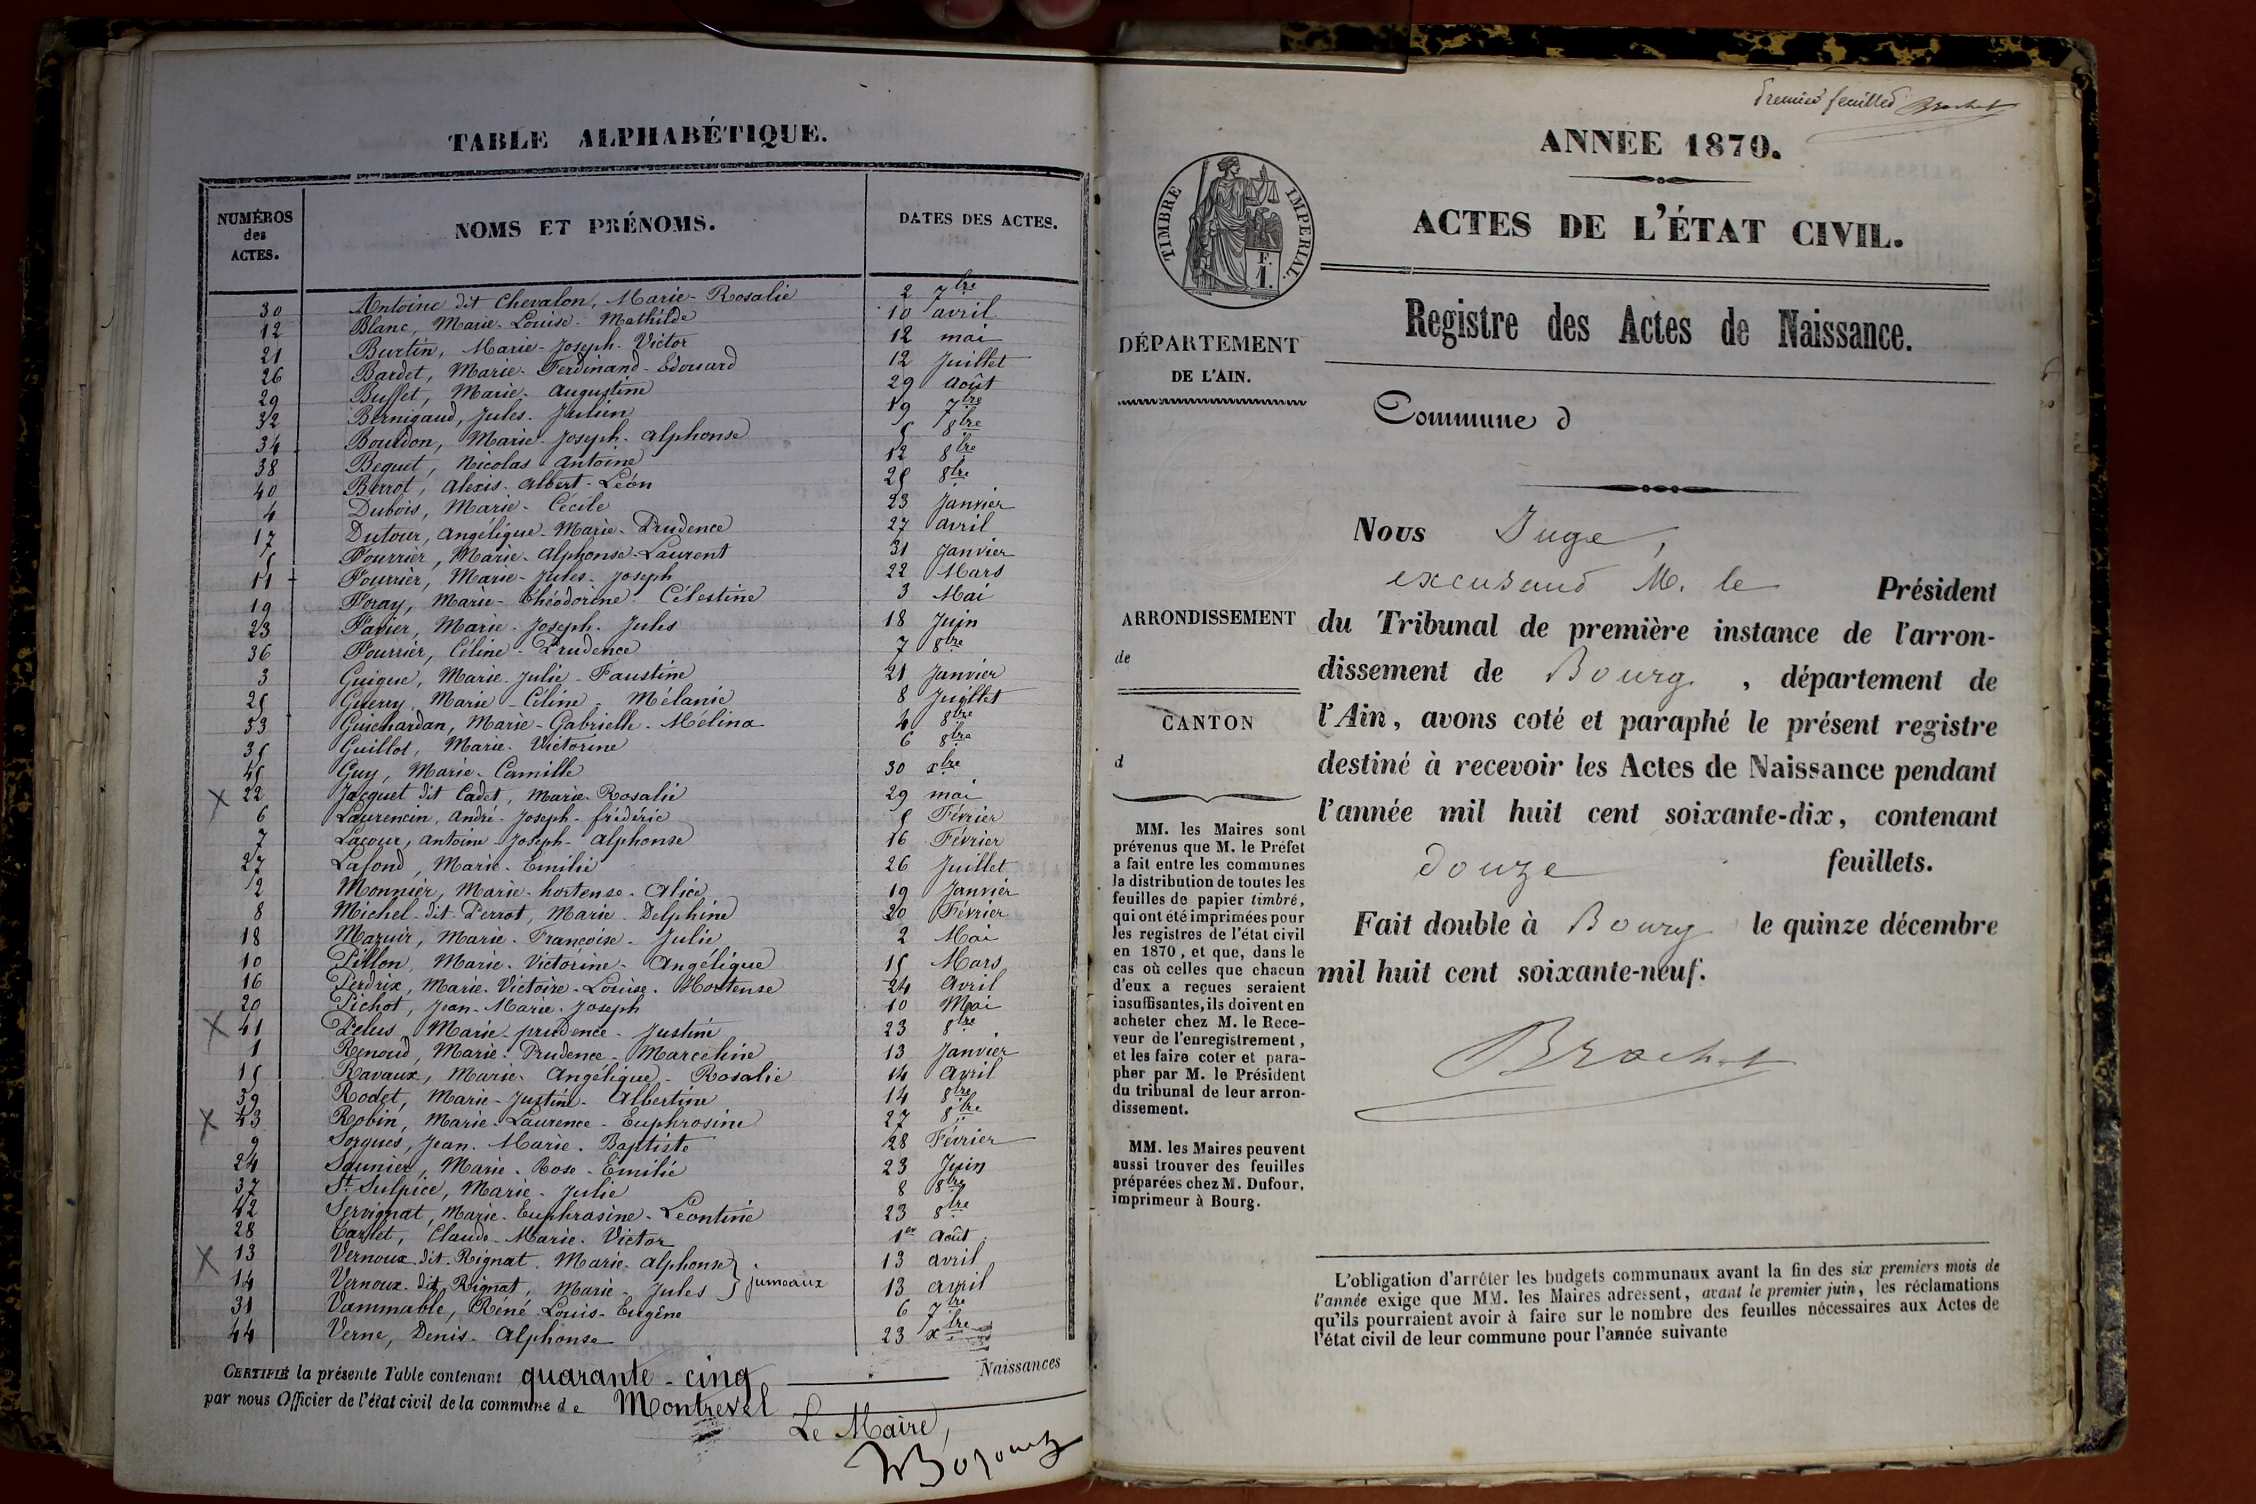 TABLE ALPHABÉTIQUE.
NUMÉROS des ACTES. NOMS ET PRÉNOMS. DATES DES ACTES.
30 Antoine dit Chevalon, Marie-Rosalie 2 7bre
12 Blanc, Marie-Louise-Mathilde 10 avril
21 Burtin, Marie-Joseph-Victor 12 mai
26 Bardet, Marie-Ferdinand-Edouard 12 Juillet
29 Buffet, Marie-Augustine 29 Août
32 Bernigaud, Jules-Julien 19 7bre
34 Bourdon, Marie-Joseph-alphonse 5 8bre
38 Bequet, Nicolas-Antoine 12 8bre
40 Berrot, Alexis-Albert-Léon 25 8bre
4 Dubois, Marie-Cécile 23 Janvier
17 Dutour, Angélique-Marie-Prudence 27 avril
5 Fourrier, Marie-Alphonse-Laurent 31 Janvier
11 Fourrier, Marie-Jules-Joseph 22 Mars
19 Foray, Marie-Théodorine-Célestine 3 Mai
23 Favier, Marie-Joseph-Jules 18 Juin
36 Fourrier, Céline-Prudence 7 8bre
3 Guigue, Marie-Julie-Faustine 21 Janvier
25 Guerry, Marie-Céline-Mélanie 8 Juillet
33 Guichardan, Marie-Gabrielle-Mélina 4 8bre
35 Guillot, Marie-Victorine 6 8bre
45 Guy, Marie-Camille 30 xbre
X 22 Jacquet dit Cadet, Marie-Rosalie 29 mai
6 Laurencin, André-Joseph-frédéric 5 Février
7 Lacour, antoine-Joseph-Alphonse 16 Février
27 Lafond, Marie-Emilie 26 Juillet
2 Monnier, Marie-hortense-Alice 19 Janvier
8 Michel-dit-Perrot, Marie-Delphine 20 Février
18 Mazuir, Marie-Françoise-Julie 2 Mai
10 Pillon, Marie-Victorine-Angélique 15 Mars
16 Perdrix, Marie-Victoire-Louise-Hortense 24 Avril
20 Pichot, Jean-Marie-Joseph 10 Mai
X 41 Pelus, Marie-prudence-Justine 23 8bre
1 Renoud, Marie-Prudence-Marceline 13 Janvier
15 Ravaux, Marie-Angélique-Rosalie 14 Avril
39 Rodet, Marie-Justine-Albertine 14 8bre
X 43 Robin, Marie-Laurence-Euphrosine 27 8bre
9 Sorgues, Jean-Marie-Baptiste 28 Février
24 Saunier, Marie-Rose-Emilie 23 Juin
37 St. Sulpice, Marie-Julie 8 8bre
42 Servignat, Marie-Euphrasine-Léontine 23 8bre
28 Tarlet, Claude-Marie-Victor 1er Août
X 13 Vernoux-dit-Rignat, Marie-Alphonse 13 avril
14 Vernoux-dit-Rignat, Marie-Jules } jumeaux 13 avril
31 Vammable, Réné-Louis-Eugène 6 7bre
44 Verne, Denis-Alphonse 23 xbre
CERTIFIÉ la présente Table contenant quarante-cinq Naissances
par nous Officier de l'état civil de la commune de Montrevel
Le Maire,
Premier feuillet Brachet
ANNÉE 1870.
ACTES DE L'ÉTAT CIVIL.
TIMBRE IMPERIAL.
F.
1.
Registre des Actes de Naissance.
DÉPARTEMENT
DE L'AIN.
Commune d
Nous Juge,
excusand M. le Président
du Tribunal de première instance de l'arron-
dissement de Bourg, département de
l'Ain, avons coté et paraphé le présent registre
destiné à recevoir les Actes de Naissance pendant
l'année mil huit cent soixante-dix, contenant
douze feuillets.
Fait double à Bourg le quinze décembre
mil huit cent soixante-neuf.
Brachet
ARRONDISSEMENT
de
CANTON
d
MM. les Maires sont
prévenus que M. le Préfet
a fait entre les communes
la distribution de toutes les
feuilles de papier timbré,
qui ont été imprimées pour
les registres de l'état civil
en 1870, et que, dans le
cas où celles que chacun
d'eux a reçues seraient
insuffisantes, ils doivent en
acheter chez M. le Rece-
veur de l'enregistrement,
et les faire coter et para-
pher par M. le Président
du tribunal de leur arron-
dissement.
MM. les Maires peuvent
aussi trouver des feuilles
préparées chez M. Dufour,
imprimeur à Bourg.
L'obligation d'arrêter les budgets communaux avant la fin des six premiers mois de
l'année exige que MM. les Maires adressent, avant le premier juin, les réclamations
qu'ils pourraient avoir à faire sur le nombre des feuilles nécessaires aux Actes de
l'état civil de leur commune pour l'année suivante